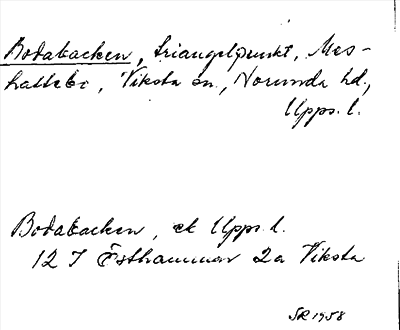 Bodabacken, triangelpunkt, Mes-
hattebo, Viksta sn, Norunda hd,
Upps. l.
Bodabacken, ek Upps. l.
12 I Östhammar 2a Viksta
SR 1958